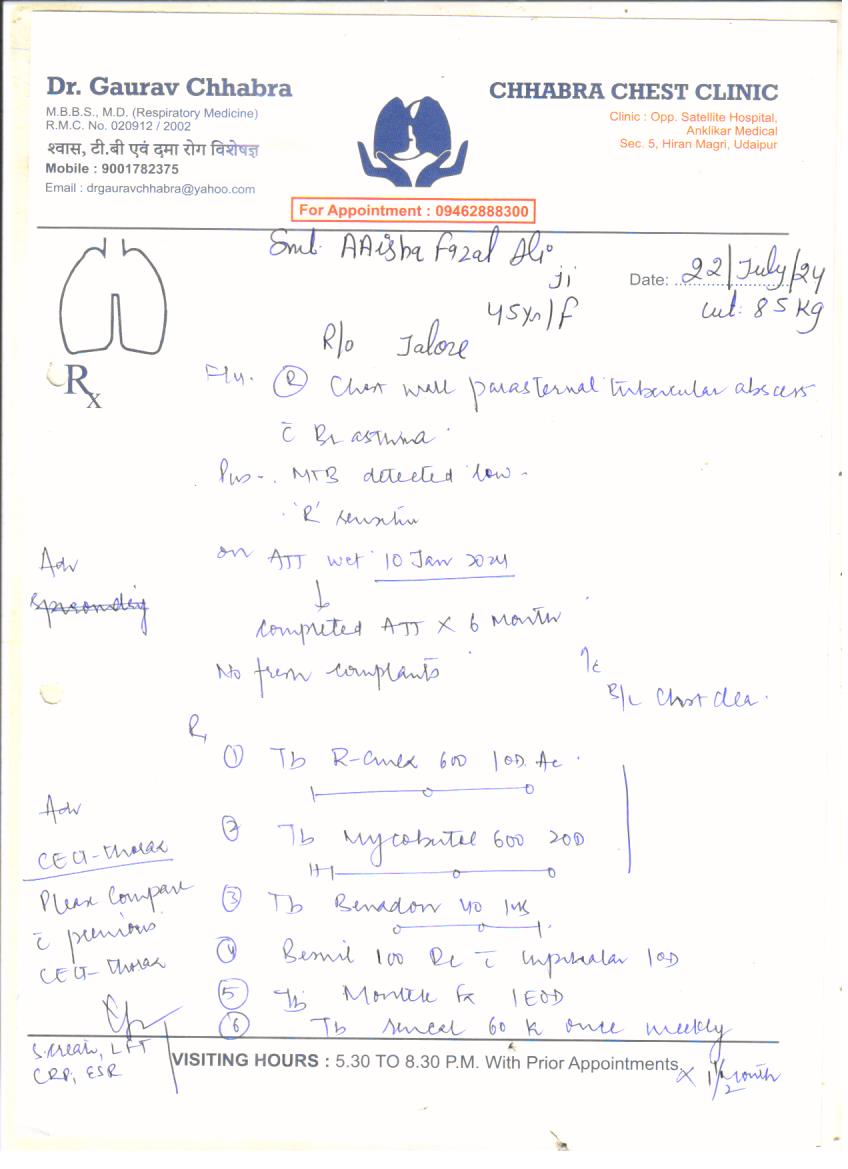 Dr. Gaurav Chhabra
M.B.B.S., M.D. (Respiratory Medicine)
R.M.C. No. 020912 / 2002
श्वास, टी.बी एवं दमा रोग विशेषज्ञ
Mobile : 9001782375
Email : drgauravchhabra@yahoo.com
CHHABRA CHEST CLINIC
Clinic : Opp. Satellite Hospital,
Anklikar Medical
Sec. 5, Hiran Magri, Udaipur
For Appointment : 09462888300
Smt. AAisha Fazal Ali
ji
Date: 22/July/24
wt: 85 Kg
45 yr/F
R/o Jalore
Rx
(R) Chest wall parasternal tubercular abscess
c̄ Br asthma
Pus - MTB detected low
'R' sensitive
on ATT wef 10 Jan 2024
↓
completed ATT x 6 Month
No fresh complaints
B/L Chest clear
Adv
R
① Tb R-cinex 600 1 OD Ac
② Tb Mycobutol 600 2 OD
③ Tb Benadon 40
④ 100 c̄ 1 OD
⑤ Tb Montek Fx 1 EOD
⑥ Tb 60 K once weekly
x 1 1/2 month
Adv
CECT-Thorax
Please Compare
c̄ previous
CECT-Thorax
S.creat, LFT
CRP, ESR
VISITING HOURS : 5.30 TO 8.30 P.M. With Prior Appointments